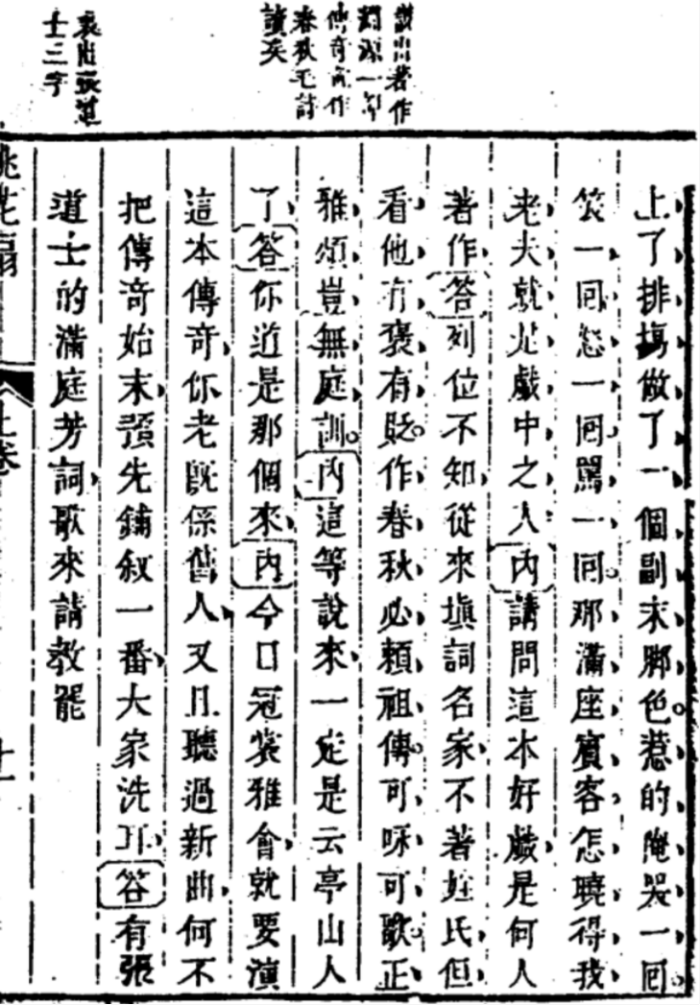 說出著作
淵源一部
傳奇可作
春秋毛詩
讀矣
表出張道
士三字
上了排場做了一個副末脚色惹的俺哭一回
笑一回怒一回罵一回那滿座賓客怎曉得我
老夫就是戲中之人内請問這本好戲是何人
著作答列位不知從來填詞名家不著姓氏但
看他有褒有貶作春秋必賴祖傳可咏可歌正
雅頌豈無庭訓内這等說來一定是云亭山人
了答你道是那個來内今日冠裳雅會就要演
這本傳奇你老既係舊人又且聽過新曲何不
把傳奇始末預先鋪叙一番大家洗耳答有張
道士的滿庭芳詞歌來請教罷
桃花扇
上卷